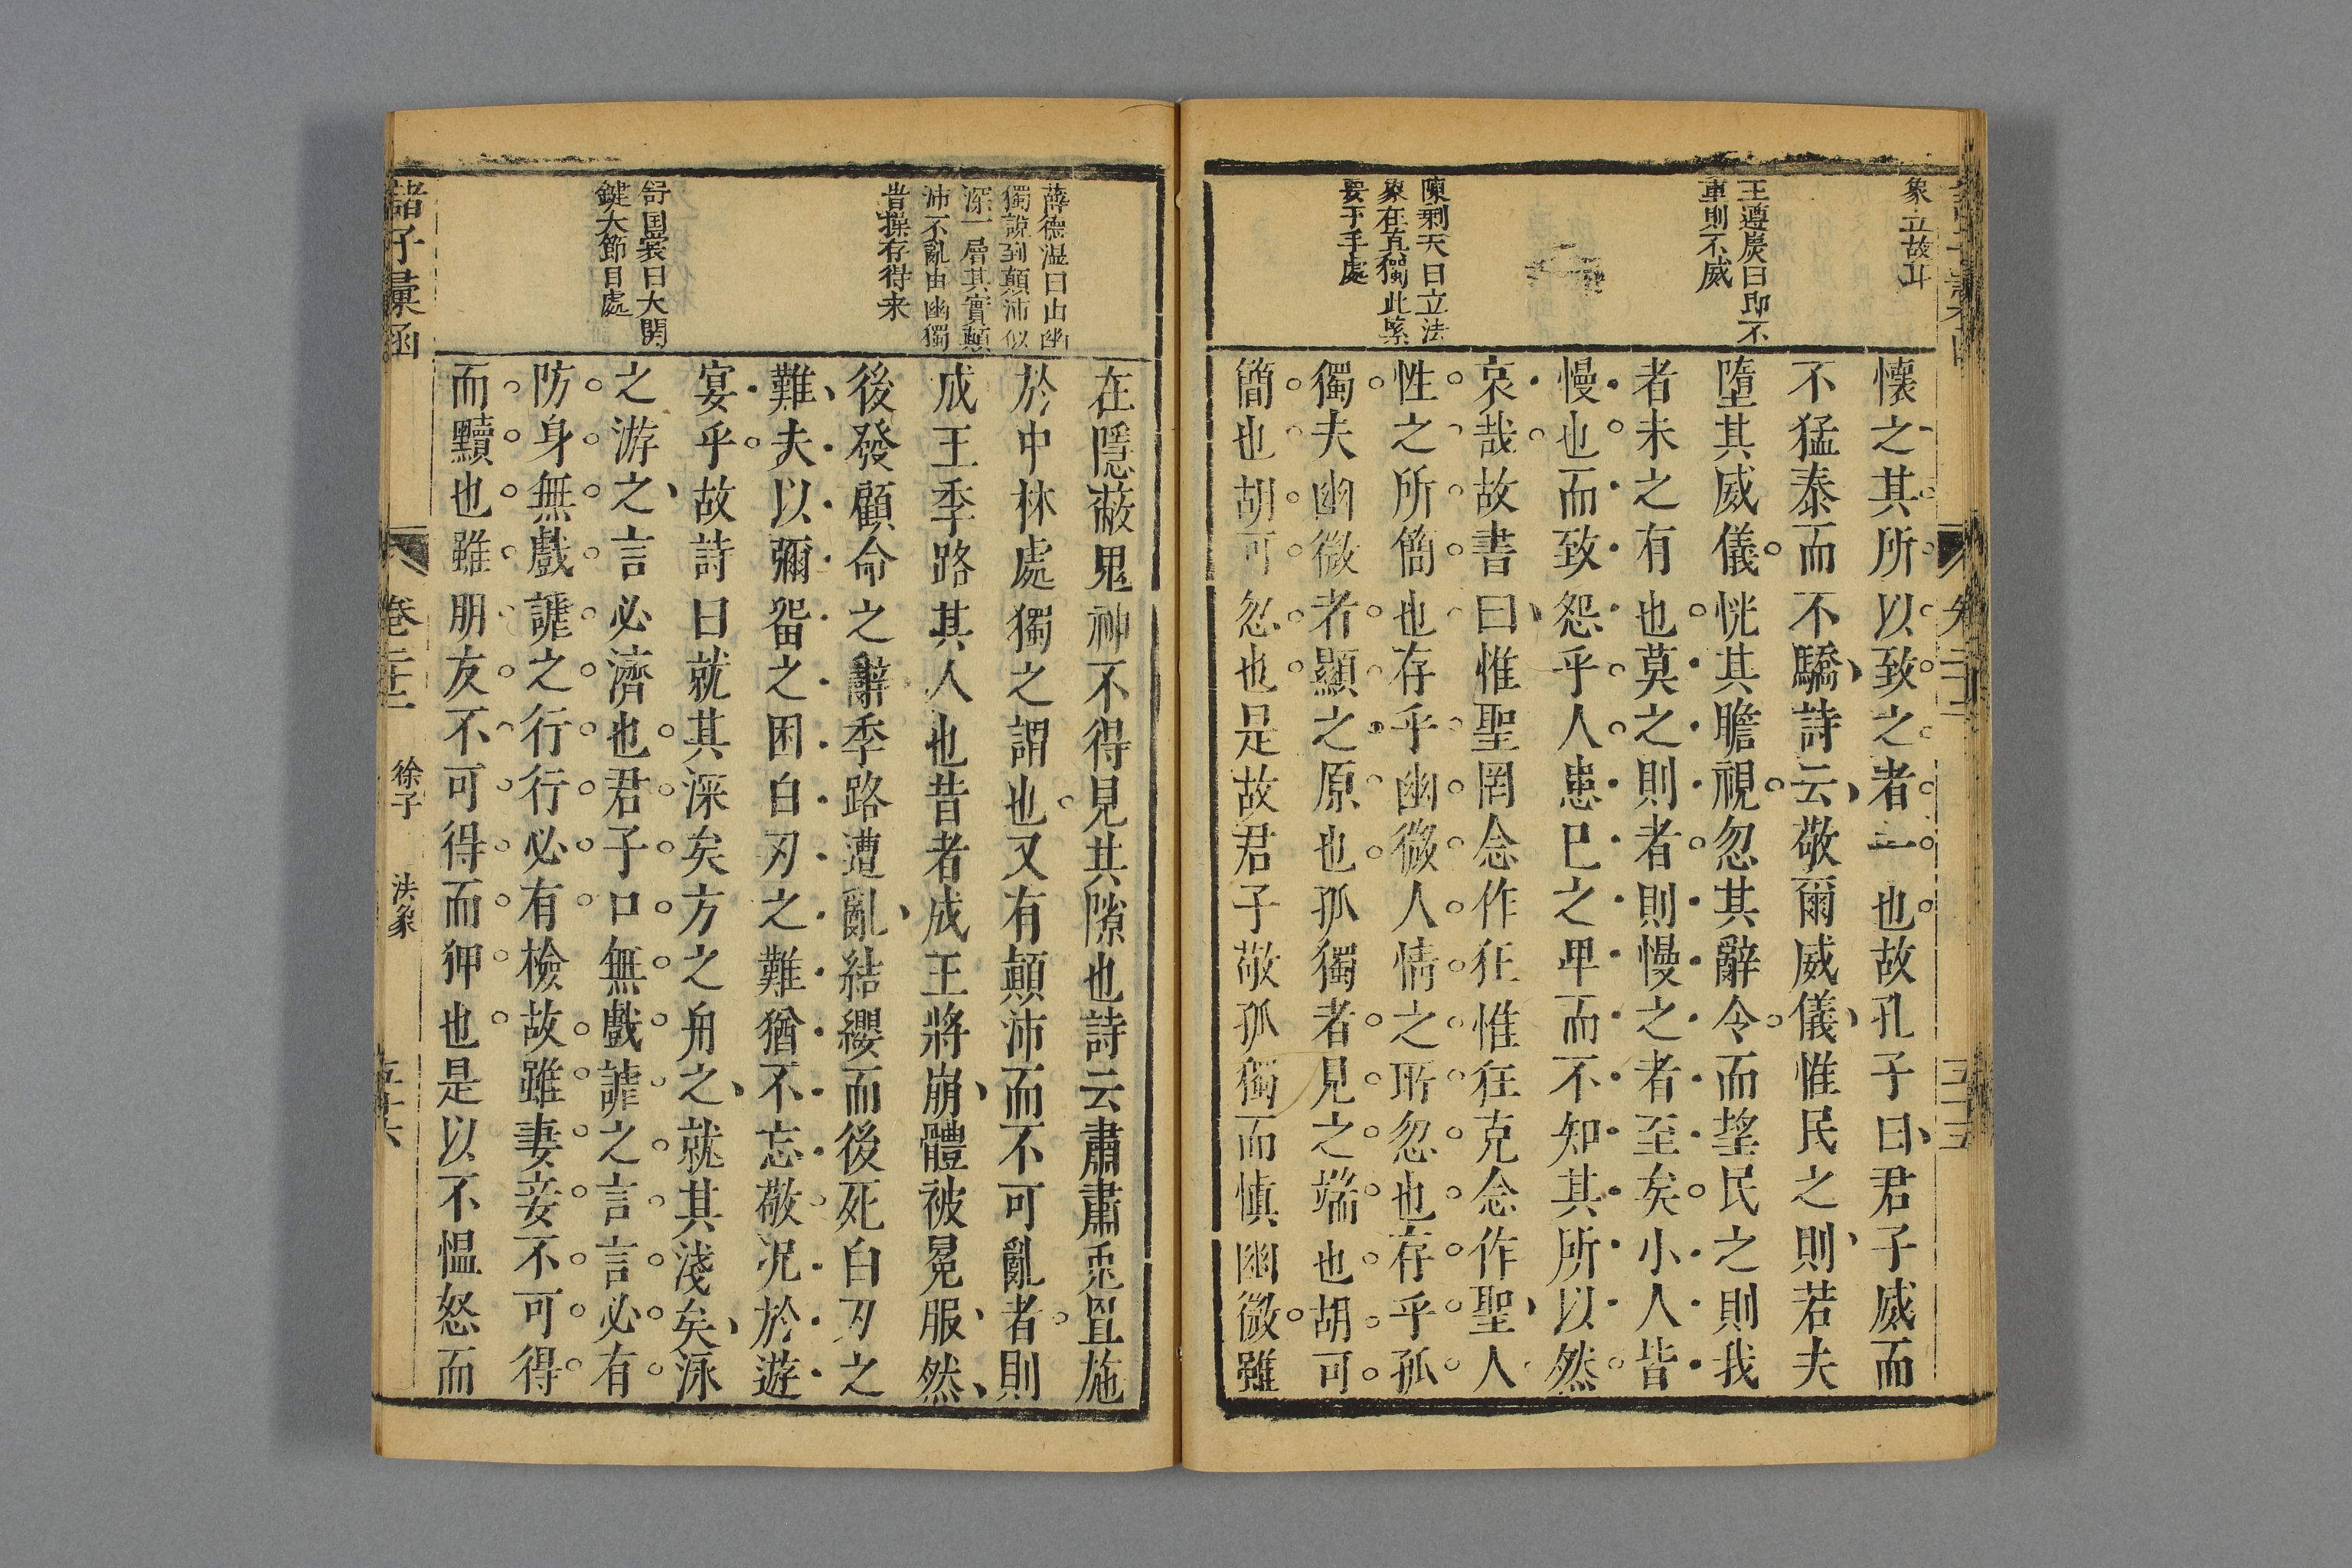 象立故耳
王遵炭曰即不
重則不威
陳剩夫曰立法
象在真獨此緊
要于手處
懷之其所以致之者一也故孔子曰君子威而
不猛泰而不驕詩云敬爾威儀惟民之則若夫
墮其威儀恍其瞻視忽其辭令而望民之則我
者未之有也莫之則者則慢之者至矣小人皆
慢也而致怨乎人患已之卑而不知其所以然
哀哉故書曰惟聖罔念作狂惟狂克念作聖人
性之所簡也存乎幽微人情之所忽也存乎孤
獨夫幽微者顯之原也孤獨者見之端也胡可
簡也胡可忽也是故君子敬孤獨而慎幽微雖
薛德温曰由幽
獨說到顛沛似
深一層其實顛
沛不亂由幽獨
昔操存得来
舒国裳曰大関
鍵大節目處
在隱蔽鬼神不得見其隙也詩云肅肅兎罝施
於中林處獨之謂也又有顛沛而不可亂者則
成王季路其人也昔者成王將崩體被冕服然
後發顧命之辭季路遭亂結纓而後死白刃之
難夫以彌留之困白刃之難猶不忘敬况於遊
宴乎故詩曰就其深矣方之舟之就其淺矣泳
之游之言必濟也君子口無戲謔之言言必有
防身無戲謔之行行必有檢故雖妻妾不可得
而黷也雖朋友不可得而狎也是以不愠怒而
諸子彙函
卷二十二
徐子
法象
五十六